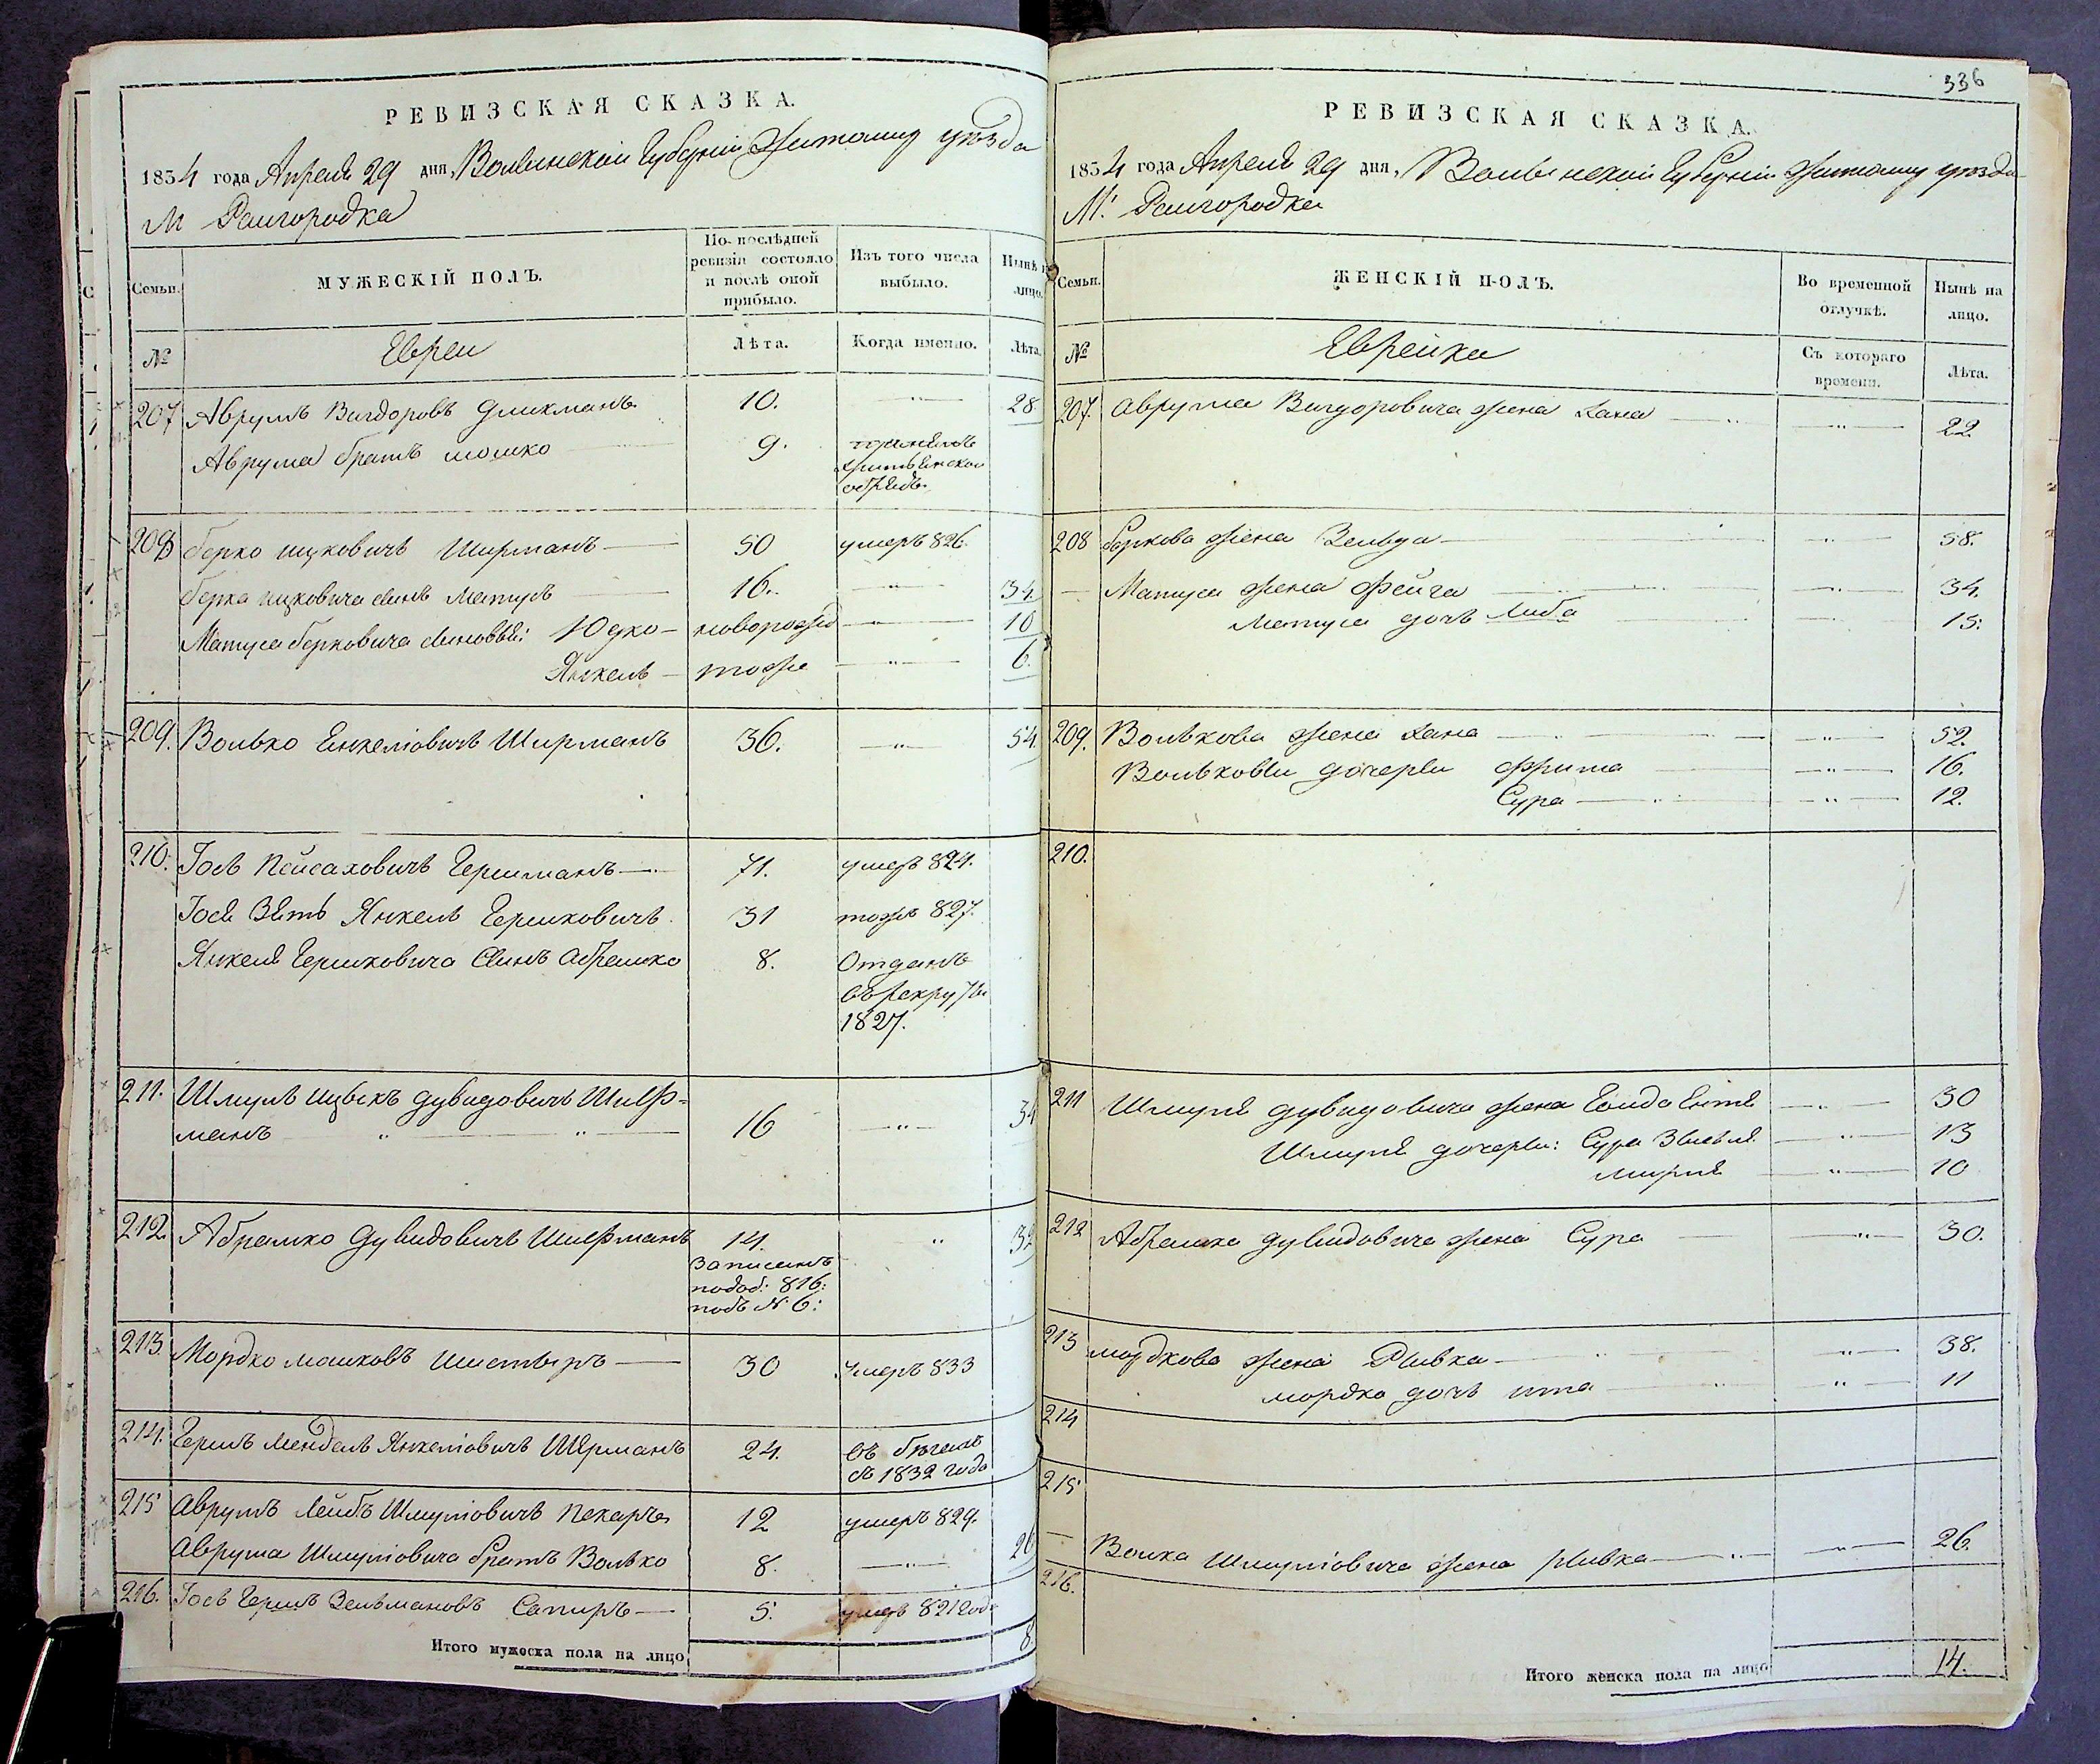 РЕВИЗСКАЯ СКАЗКА.
1834 года Апреля 29 дня, Волынской Губерніи Житомир уѣзда
М Райгородка
Семьи.
МУЖЕСКІЙ ПОЛЪ.
По послѣдней ревизіи состояло и послѣ оной прибыло.
Изъ того числа выбыло.
Нынѣ на лицо.
№
Евреи
Лѣта.
Когда именно.
Лѣта.
207 Аврумъ Вигдоровъ Гликманъ 10. — " — 28.
Аврума братъ мошко 9. принялъ
обрядъ.
208 берко ицковичъ Ширманъ — 50 умеръ 826.
берка ицковича сынъ Матусъ 16. — " — 34.
Матуса берковича сыновья: Юдко — новорожд — " — 10
Янкель — тоже — " — 6.
209. Волько Енкеліовичъ Ширманъ 36. — " — 54.
210. Іось Пейсаховичъ Гершманъ — 71. умеръ 824.
Іося Зять Янкель Гершковичъ 31 тожъ 827.
Янкеля Гершковича Сынъ Абрамко 8. Отданъ
въ рекруты
1827.
211. Шмуль ицыкъ дувидовичъ Шиф=
манъ " " 16 — " — 34
212. Абрамко дувидовичъ Шифманъ 14. " 32
Записанъ
по доб: 816:
подъ № 6:
213. Мордко мошковъ — 30 Умеръ 833
214. Гершъ Мендель Янкеліовичъ Шерманъ 24. Въ бѣгахъ
съ 1832 года
215 Аврумъ Лейбъ Шмуліовичъ Пекаръ 12 умеръ 829.
Аврума Шмуліовича братъ Волько 8. — " — 26
216. Іось Гершъ Зельмановъ Сапиръ — 5. умеръ 821 года
Итого мужеска пола на лицо 8.
336
РЕВИЗСКАЯ СКАЗКА.
1834 года Апреля 29 дня, Волынской Губерніи Житомир уѣзда
М. Райгородка
Семьи.
ЖЕНСКІЙ ПОЛЪ.
Во временной отлучкѣ.
Нынѣ на лицо.
№
Еврейки
Съ котораго времени.
Лѣта.
207. Аврума Вигдоровича жена Хана — " — 22.
208 беркова жена Зельда — " — 58.
— Матуса жена Фейга — " — 34.
Матуса дочь Либа — " — 15.
209. Волькова жена Хана — " — 52.
Волькови дочери Фрима — " — 16.
Сура — " — 12.
210.
211 Шмуля дувидовича жена Ента — " — 30
Шмуля дочери: Сура — " — 13
миріля — " — 10
212 Абрамка дувидовича жена Сура — " — 30.
213 мордкова жена Ривка — " — 38.
мордко дочь ита " 11
214
215
— Волка Шмуліовича жена Ривка — " — 26.
216.
Итого женска пола на лицо 14.